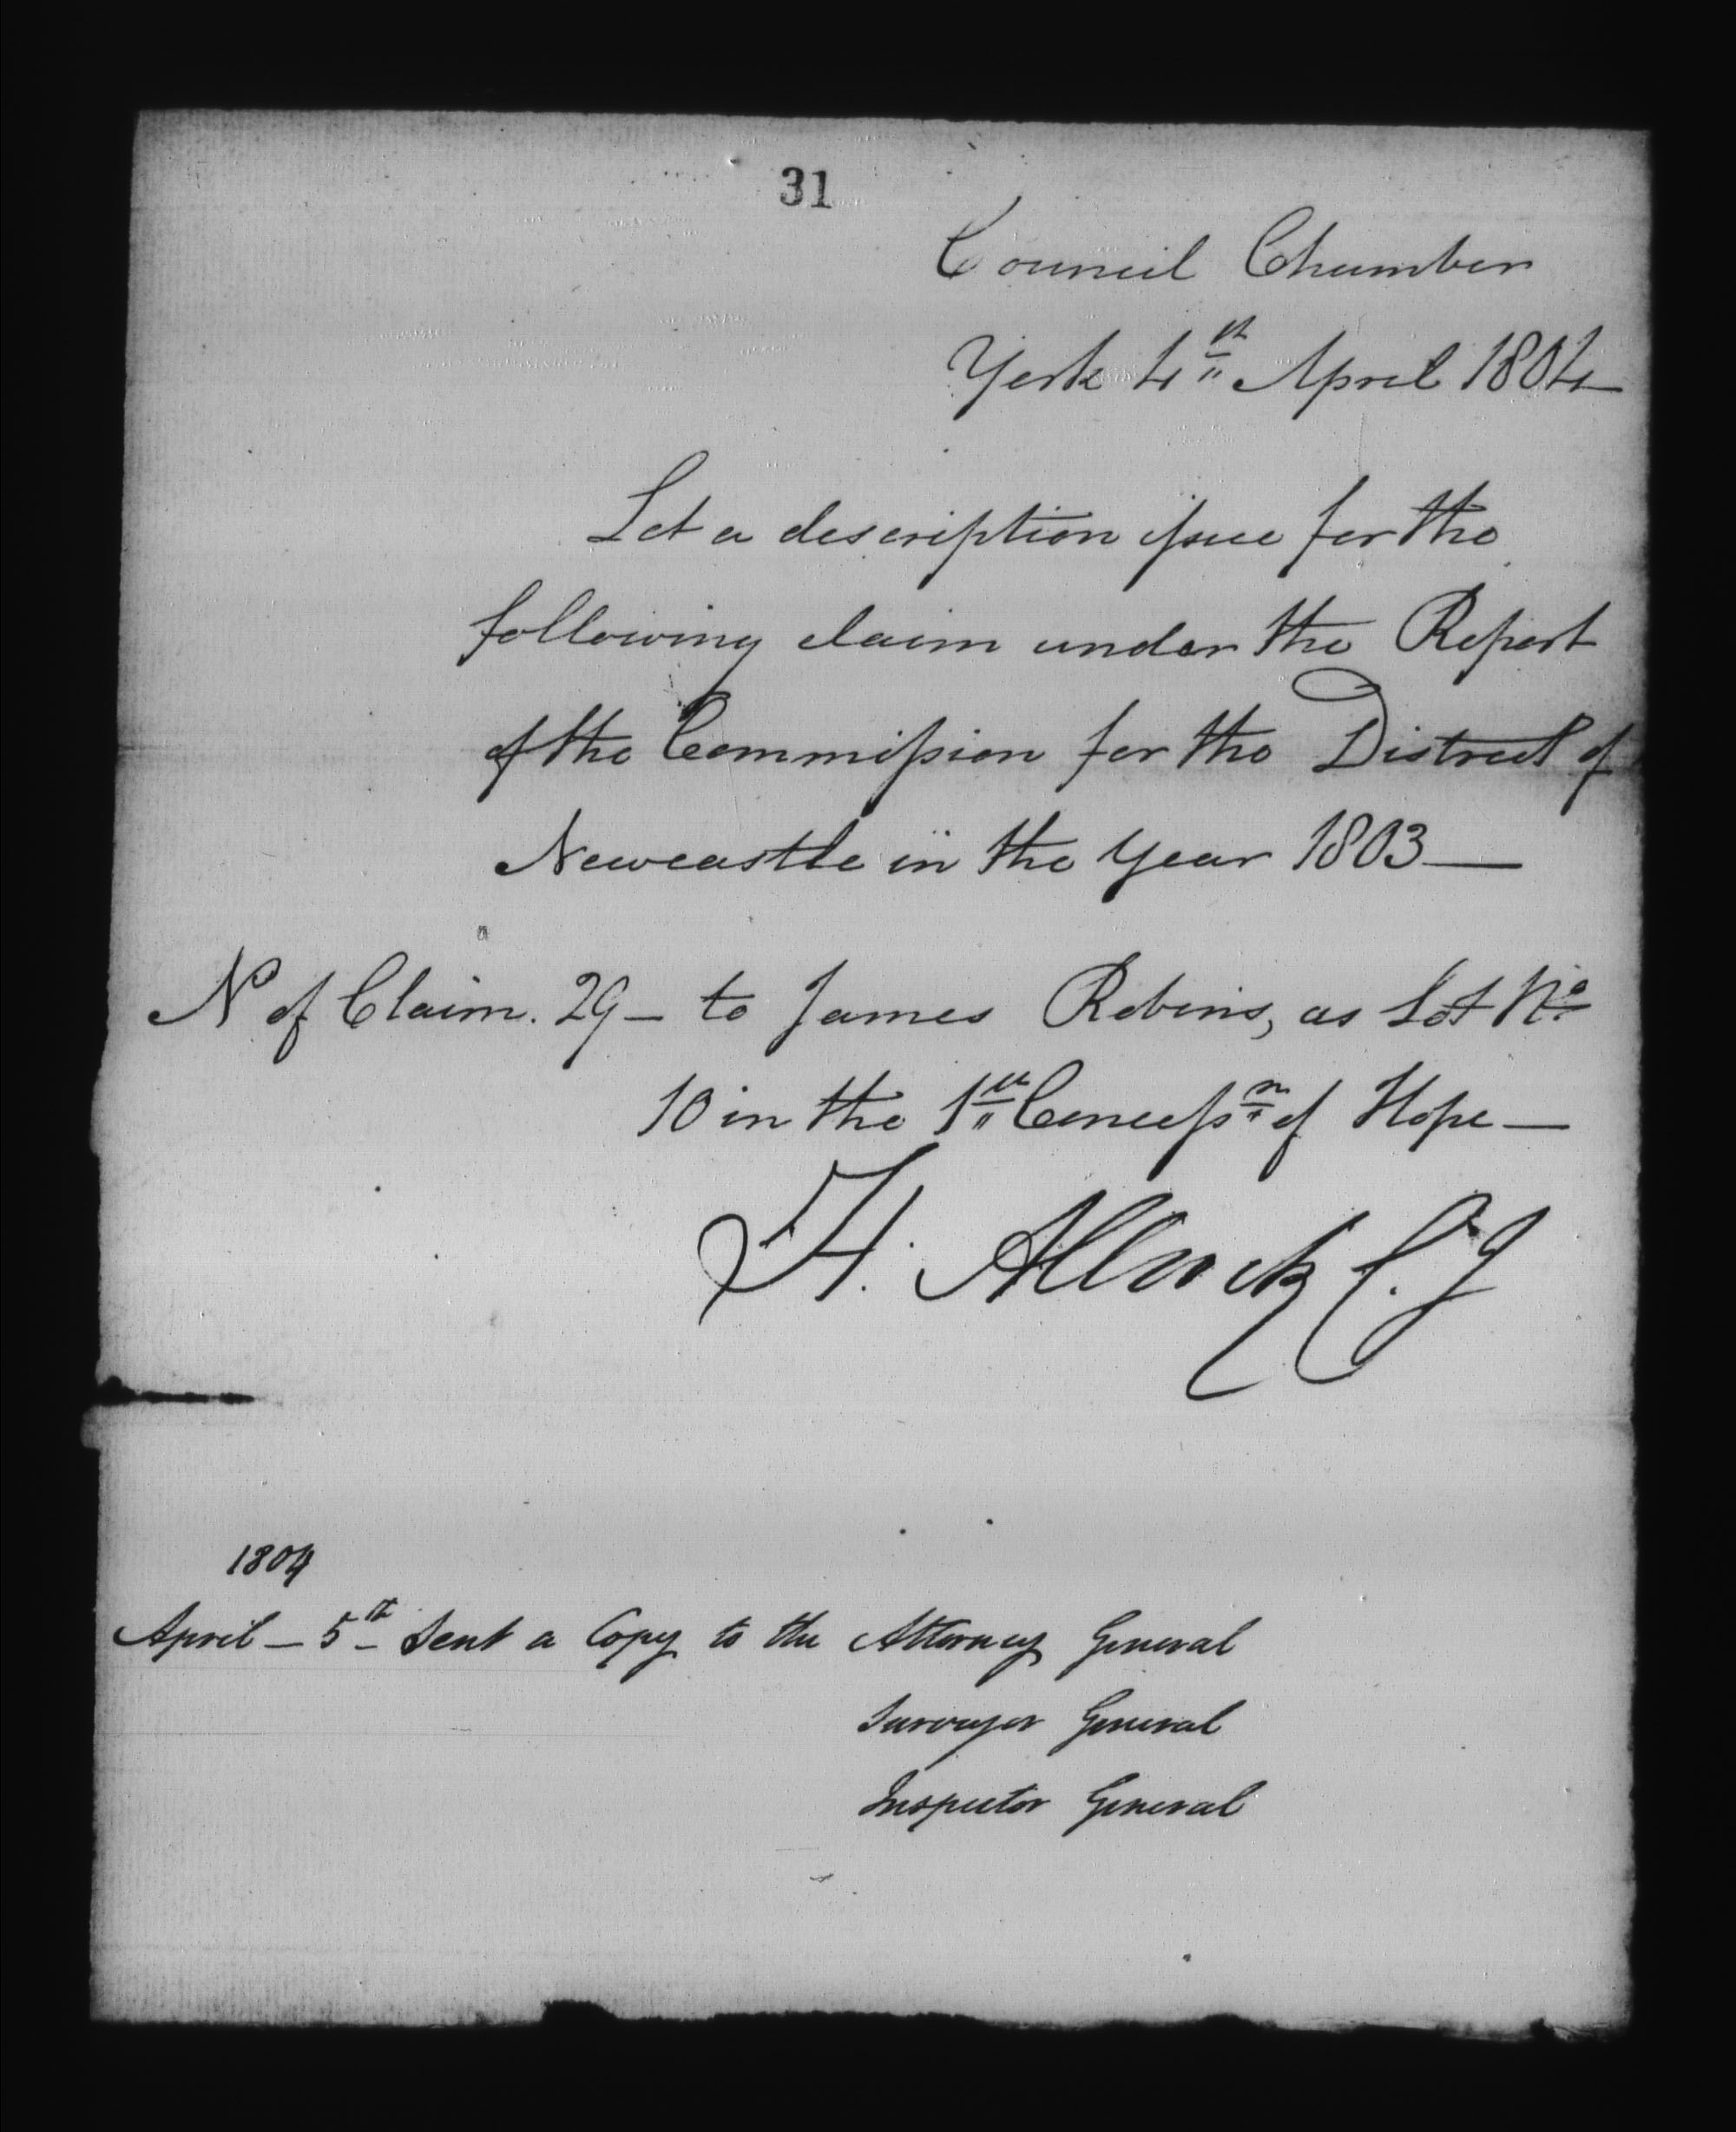 31
Council Chamber
York 4th April 1804
Let a description issue for the
following claim under the Report
of the Commission for the District of
Newcastle in the Year 1803—
No of Claim. 29 — to James Robins, as Lot No
10 in the 1st Concessn of Hope —
H. Allcock C. J
1804
April — 5th — Sent a Copy to the Attorney General
Surveyor General
Inspector General